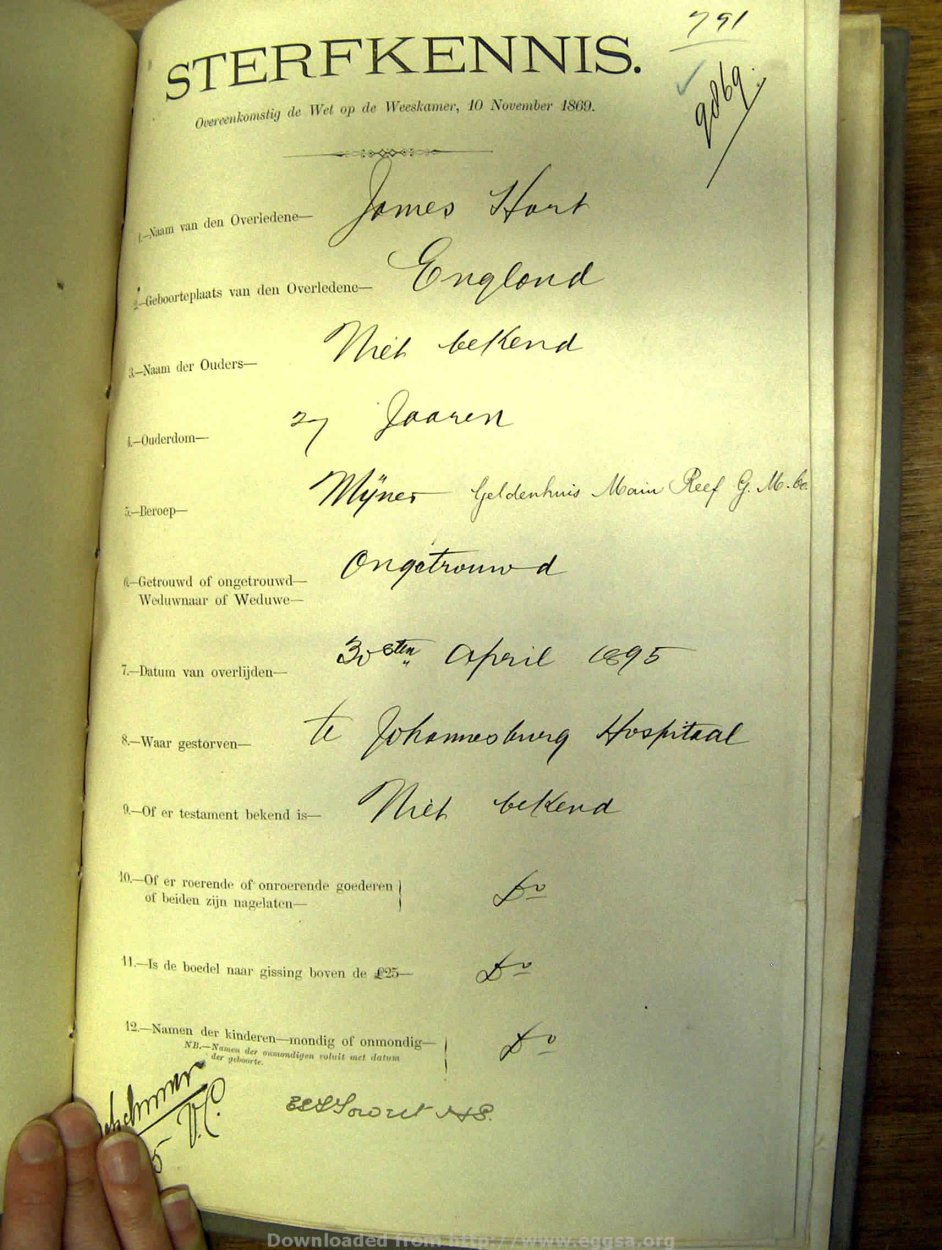 791
9869.
STERFKENNIS.
Overeenkomstig de Wet op de Weeskamer, 10 November 1869.
1.—Naam van den Overledene— James Hart
2.—Geboorteplaats van den Overledene— England
3.—Naam der Ouders— Niet bekend
4.—Ouderdom— 27 Jaaren
5.—Beroep— Mÿner Geldenhuis Main Reef G. M. Co.
6.—Getrouwd of ongetrouwd— Ongetrouwd
Weduwnaar of Weduwe—
7.—Datum van overlijden— 30sten April 1895
8.—Waar gestorven— te Johannesburg Hospitaal
9.—Of er testament bekend is— Niet bekend
10.—Of er roerende of onroerende goederen } Do
of beiden zijn nagelaten—
11.—Is de boedel naar gissing boven de £25— Do
12.—Namen der kinderen—mondig of onmondig— } Do
NB.—Namen der onmondigen voluit met datum
der geboorte.
5 V.C.
Downloaded from http://www.eggsa.org